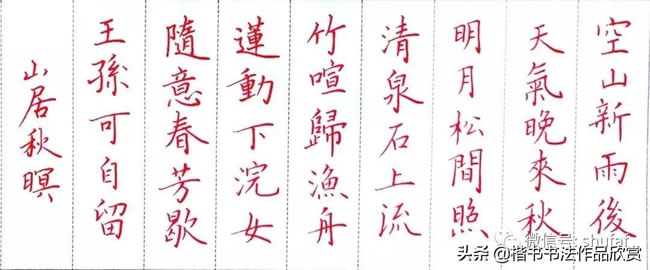 空山新雨後
天氣晚來秋
明月松間照
清泉石上流
竹喧歸漁舟
蓮動下浣女
隨意春芳歇
王孫可自留
山居秋暝
微信号: shufaf
头条 @楷书书法作品欣赏